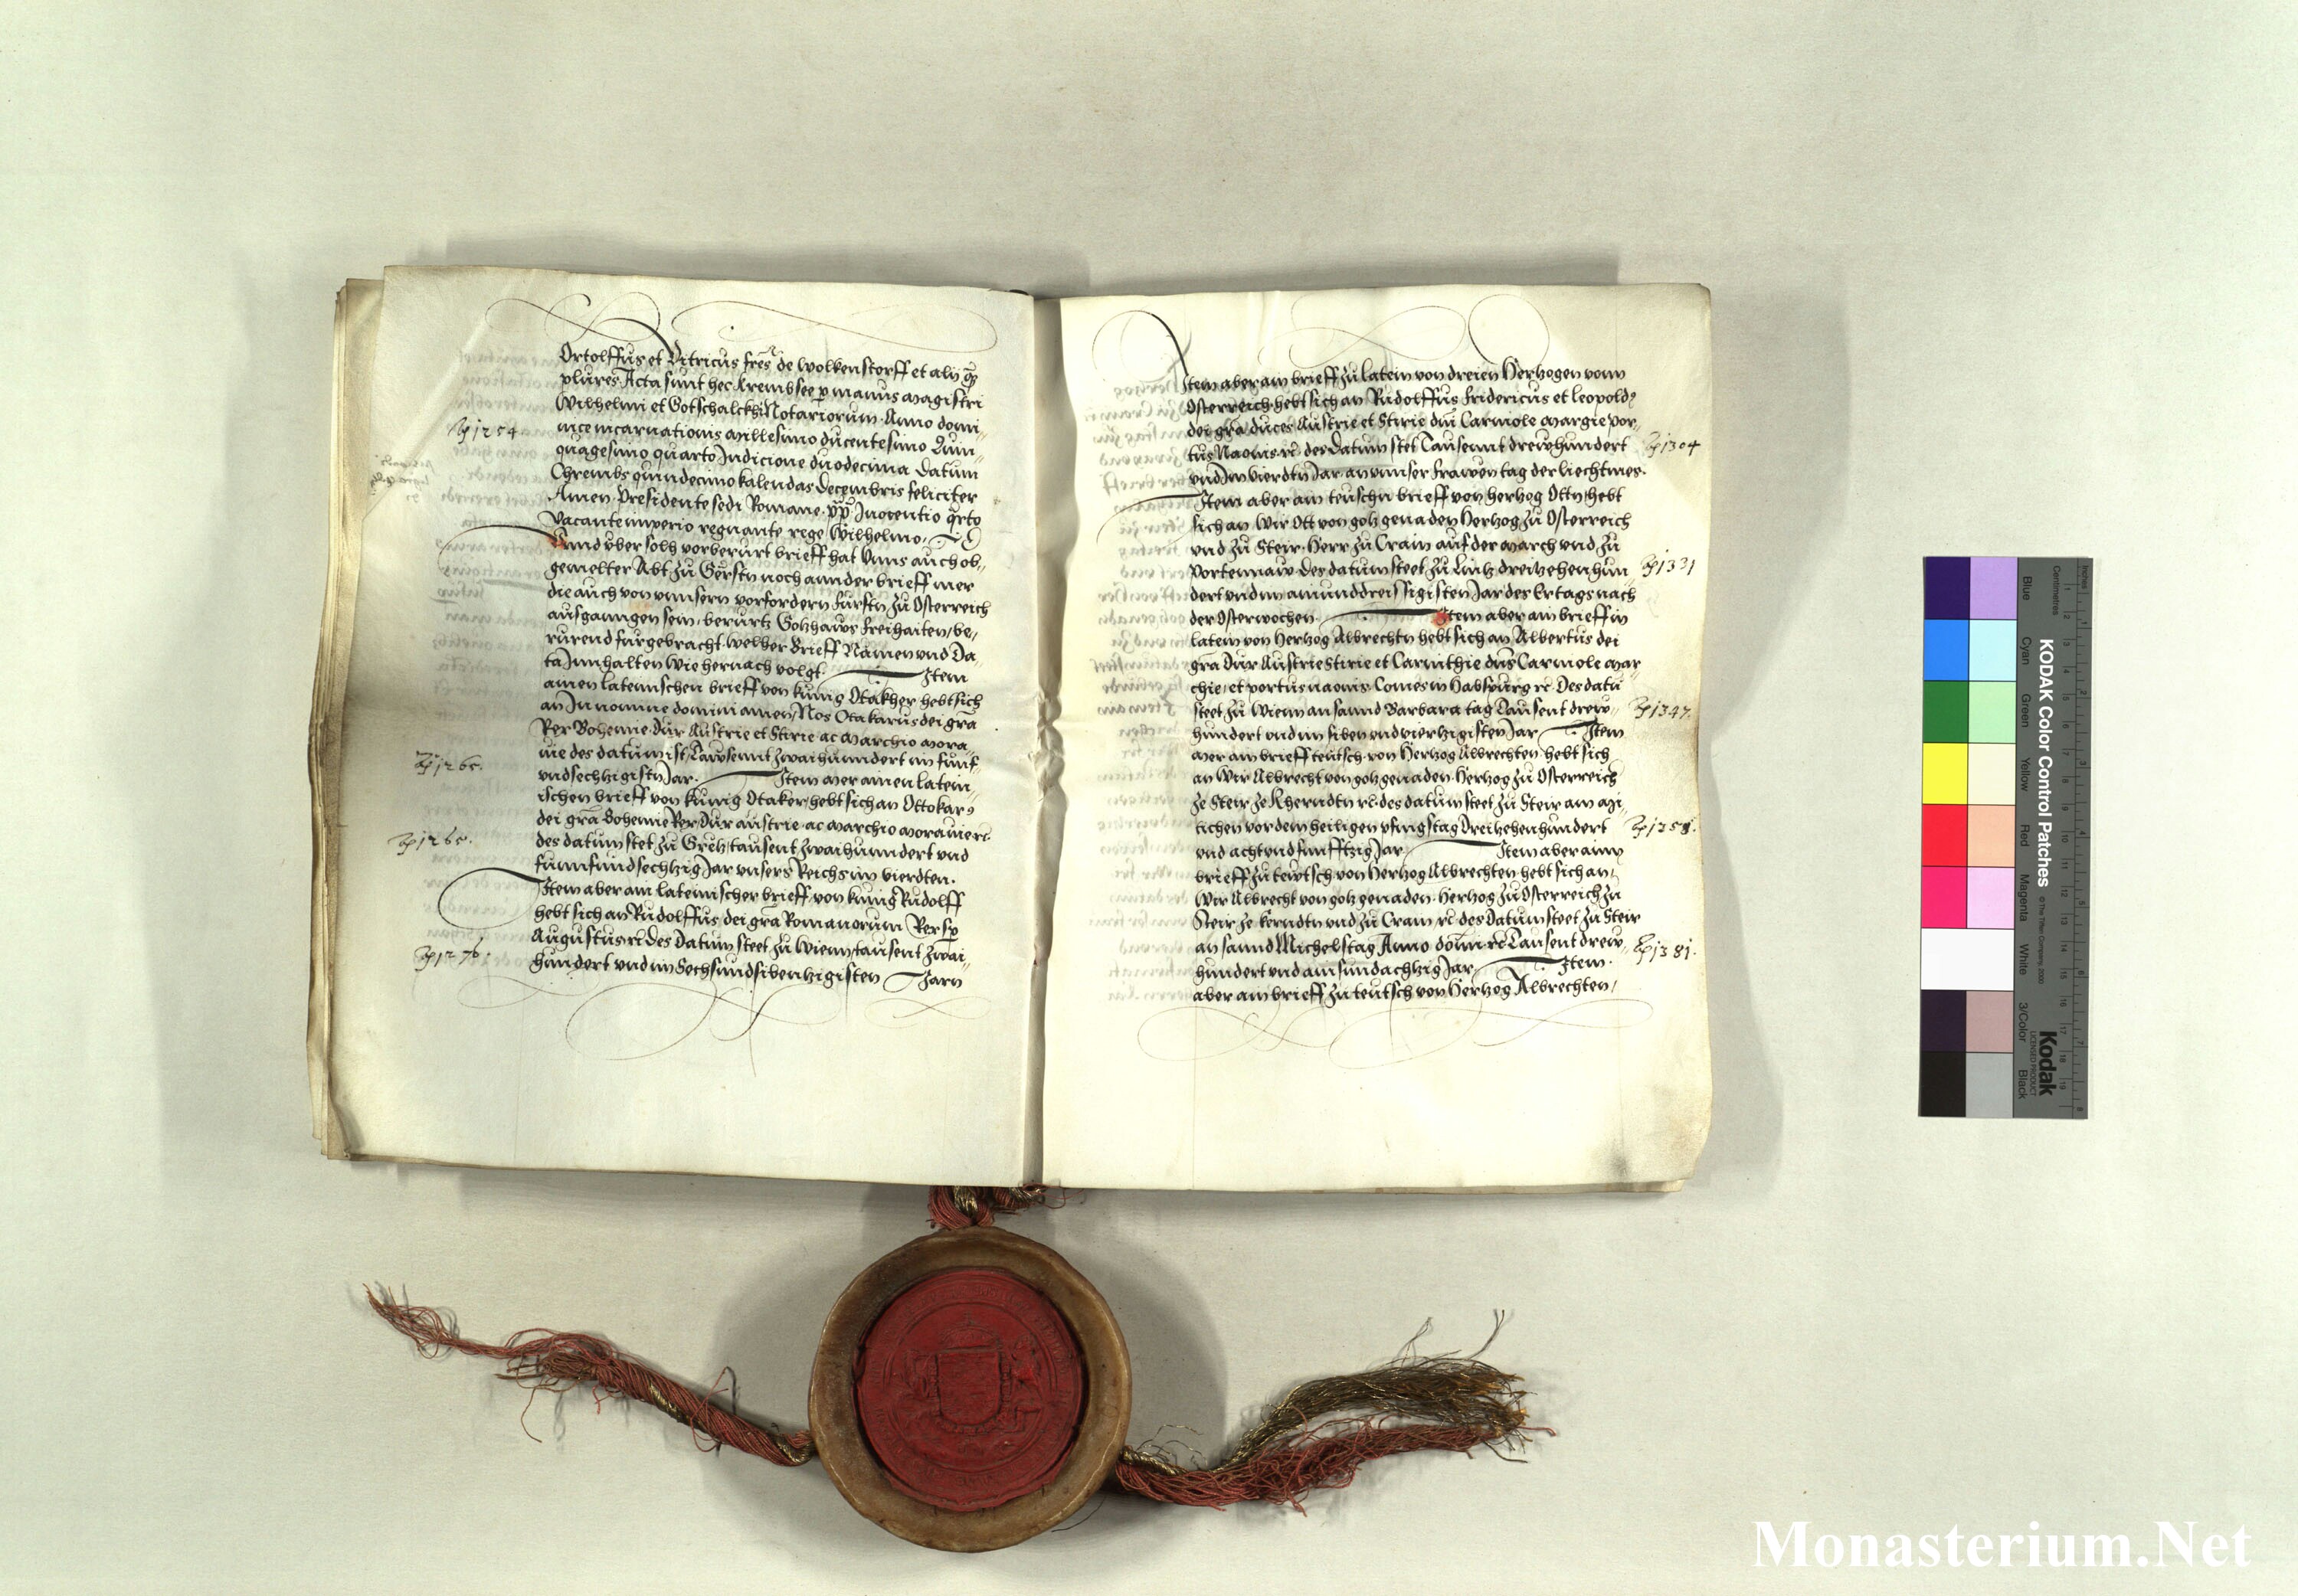 Ortolffus et Ditricus fres de Wolkenstorff et alij
plures Acta sunt hec Crembsee p manus magistri
Wilhelmi et Gotschalckhi Notariorum. Anno domi-
nice incarnationis millesimo ducentesimo Quin-
quagesimo quarto Indicione duodecima Datum
Chrembs quindecimo kalendas Decembris feliciter
Amen. Presidente sedi Romane. pp Inocentio qrto
Vacante imperio regnante rege Wilhelmo.
Unnd vber solh vorberurt brieff hat Unns auch ob-
gemelter Abt zu Gerstn noch annder brieff mer
die auch von unnsern vorfordern Furstn zu Osterreich
ausganngen sein. berurts Gotzhaws freihaiten, be-
rurend furgebracht. welher brieff Namen und Da-
ta Innhalten wie hernach volgt. Item
ainen lateinschen brieff von kunig Otakher hebt sich
an In nomine domini amen, Nos Otakarus dei gra
Rex Bohemie. Dux Austrie et Stirie ac marchio mora-
uie des datum ist Tawsennt zwaihunndert im funf-
undsechtzigistn Jar. Item mer ainen latein-
ischen brieff von kunig Otaker, hebt sich an Ottokar9
dei gra Bohemie Rex Dux austrie. ac marchio moravie rc
des datum stet zu Gretz, tausent zwaihunndert und
funnfundsechtzig Jar unsers Reichs im vierdten.
Item aber ain lateinischer brieff von kunig Rudolff
hebt sich an Rudolffus dei gra Romanorum Rex sp
Augustus rc des Datum steet zu Wienn tausent zwai-
hundert und im Sechsundsibenzigisten Jarn
1254
1265.
1265.
1276.
Item aber ain brieff zu latein von dreien Hertzogen vonn
Osterreich. hebt sich an Rudolffus Fridericus et leopold9
dei gra duces Austrie et Stirie dni Carniole Margie por-
tus Naonis. rc. des Datum stet Tausennt drewhundert
und Im vierdtn Jar an unnser frawen tag der liechtmes.
Item aber ain teuschn brieff von hertzog Ottn, hebt
sich an Wir Ott von gotz genaden Hertzog zu Osterreich
und zu Steir. Herr zu Crain auf der march und zu
Portennaw. des datum steet zu Lintz dreitzehenhun-
dert und im ainunddreissigisten Jar des Ertags nach
der Osterwochen. Item aber ain brieff in
latein von Hertzog Albrechtn hebt sich an Albertus dei
gra Dux Austrie Stirie et Carinthie dns Carniole mar
chie, et portus naonis. Comes in Habspurg rc. Des datu
steet zu Wienn an sannd Barbara tag Tausent drew-
hundert und im siben und viertzigisten Jar Item
mer ain brieff teutsch. von Hertzog Albrechten hebt sich
an Wir Albrecht von gotz genaden. Hertzog zu Osterreich
ze Steir ze Kherndtn rc. des datum steet zu Steir am mi-
tichen vor dem heiligen pfingstag Dreitzehenhundert
und acht und funfftzig Jar Item aber ainn
brieff zu tewtsch. von Hertzog Albrechten hebt sich an,
Wir Albrecht von gotz genaden. Hertzog zu Osterreich zu
Steir ze kerndtn und zu Crain rc. des Datum steet zu Steir
an sannd Michelstag Anno domi. rc Tausent drew-
hundert und ainsundachtzig Jar Item.
aber ain brieff zu teutsch von Hertzog Albrechten,
1304
1331
1347.
1358.
1381.
KODAK Color Control Patches
© The Tiffen Company, 2000
Kodak
LICENSED PRODUCT
Inches
Centimetres
Blue
Cyan
Green
Yellow
Red
Magenta
White
3/Color
Black
Monasterium.Net